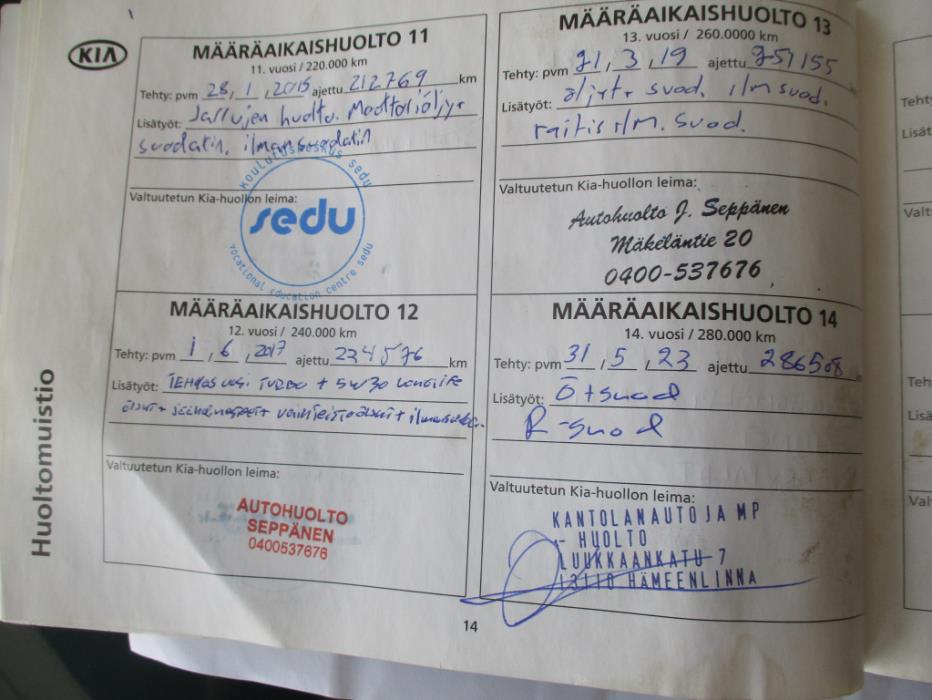 KIA
MÄÄRÄAIKAISHUOLTO 11
11. vuosi / 220.000 km
Tehty: pvm 28 , 1 , 2015 ajettu 212769 km
Lisätyöt: Jarrujen huolto. Moottoriöljy+
suodatin. ilmansuodatin
Valtuutetun Kia-huollon leima:
Koulutuskeskus sedu
sedu
vocational education centre sedu
MÄÄRÄAIKAISHUOLTO 12
12. vuosi / 240.000 km
Tehty: pvm 1 , 6 , 2017 ajettu 234576 km
Lisätyöt: TEHDAS UUSI TURBO + 5W30 LONGLIFE
öljyt + jäähdnesteet + vaihteistoöljyt +
Valtuutetun Kia-huollon leima:
AUTOHUOLTO
SEPPÄNEN
0400537676
Huoltomuistio
MÄÄRÄAIKAISHUOLTO 13
13. vuosi / 260.0000 km
Tehty: pvm 21 , 3 , 19 ajettu 251155
Lisätyöt: öljyt + suod. ilm suod.
raitis ilm. suod.
Valtuutetun Kia-huollon leima:
Autohuolto J. Seppänen
Mäkeläntie 20
0400-537676
MÄÄRÄAIKAISHUOLTO 14
14. vuosi / 280.000 km
Tehty: pvm 31 , 5 , 23 ajettu 286508 km
Lisätyöt: Ö+suod
R-suod
Valtuutetun Kia-huollon leima:
KANTOLANAUTO JA MP
- HUOLTO
LUUKKAANKATU 7
13110 HÄMEENLINNA
14